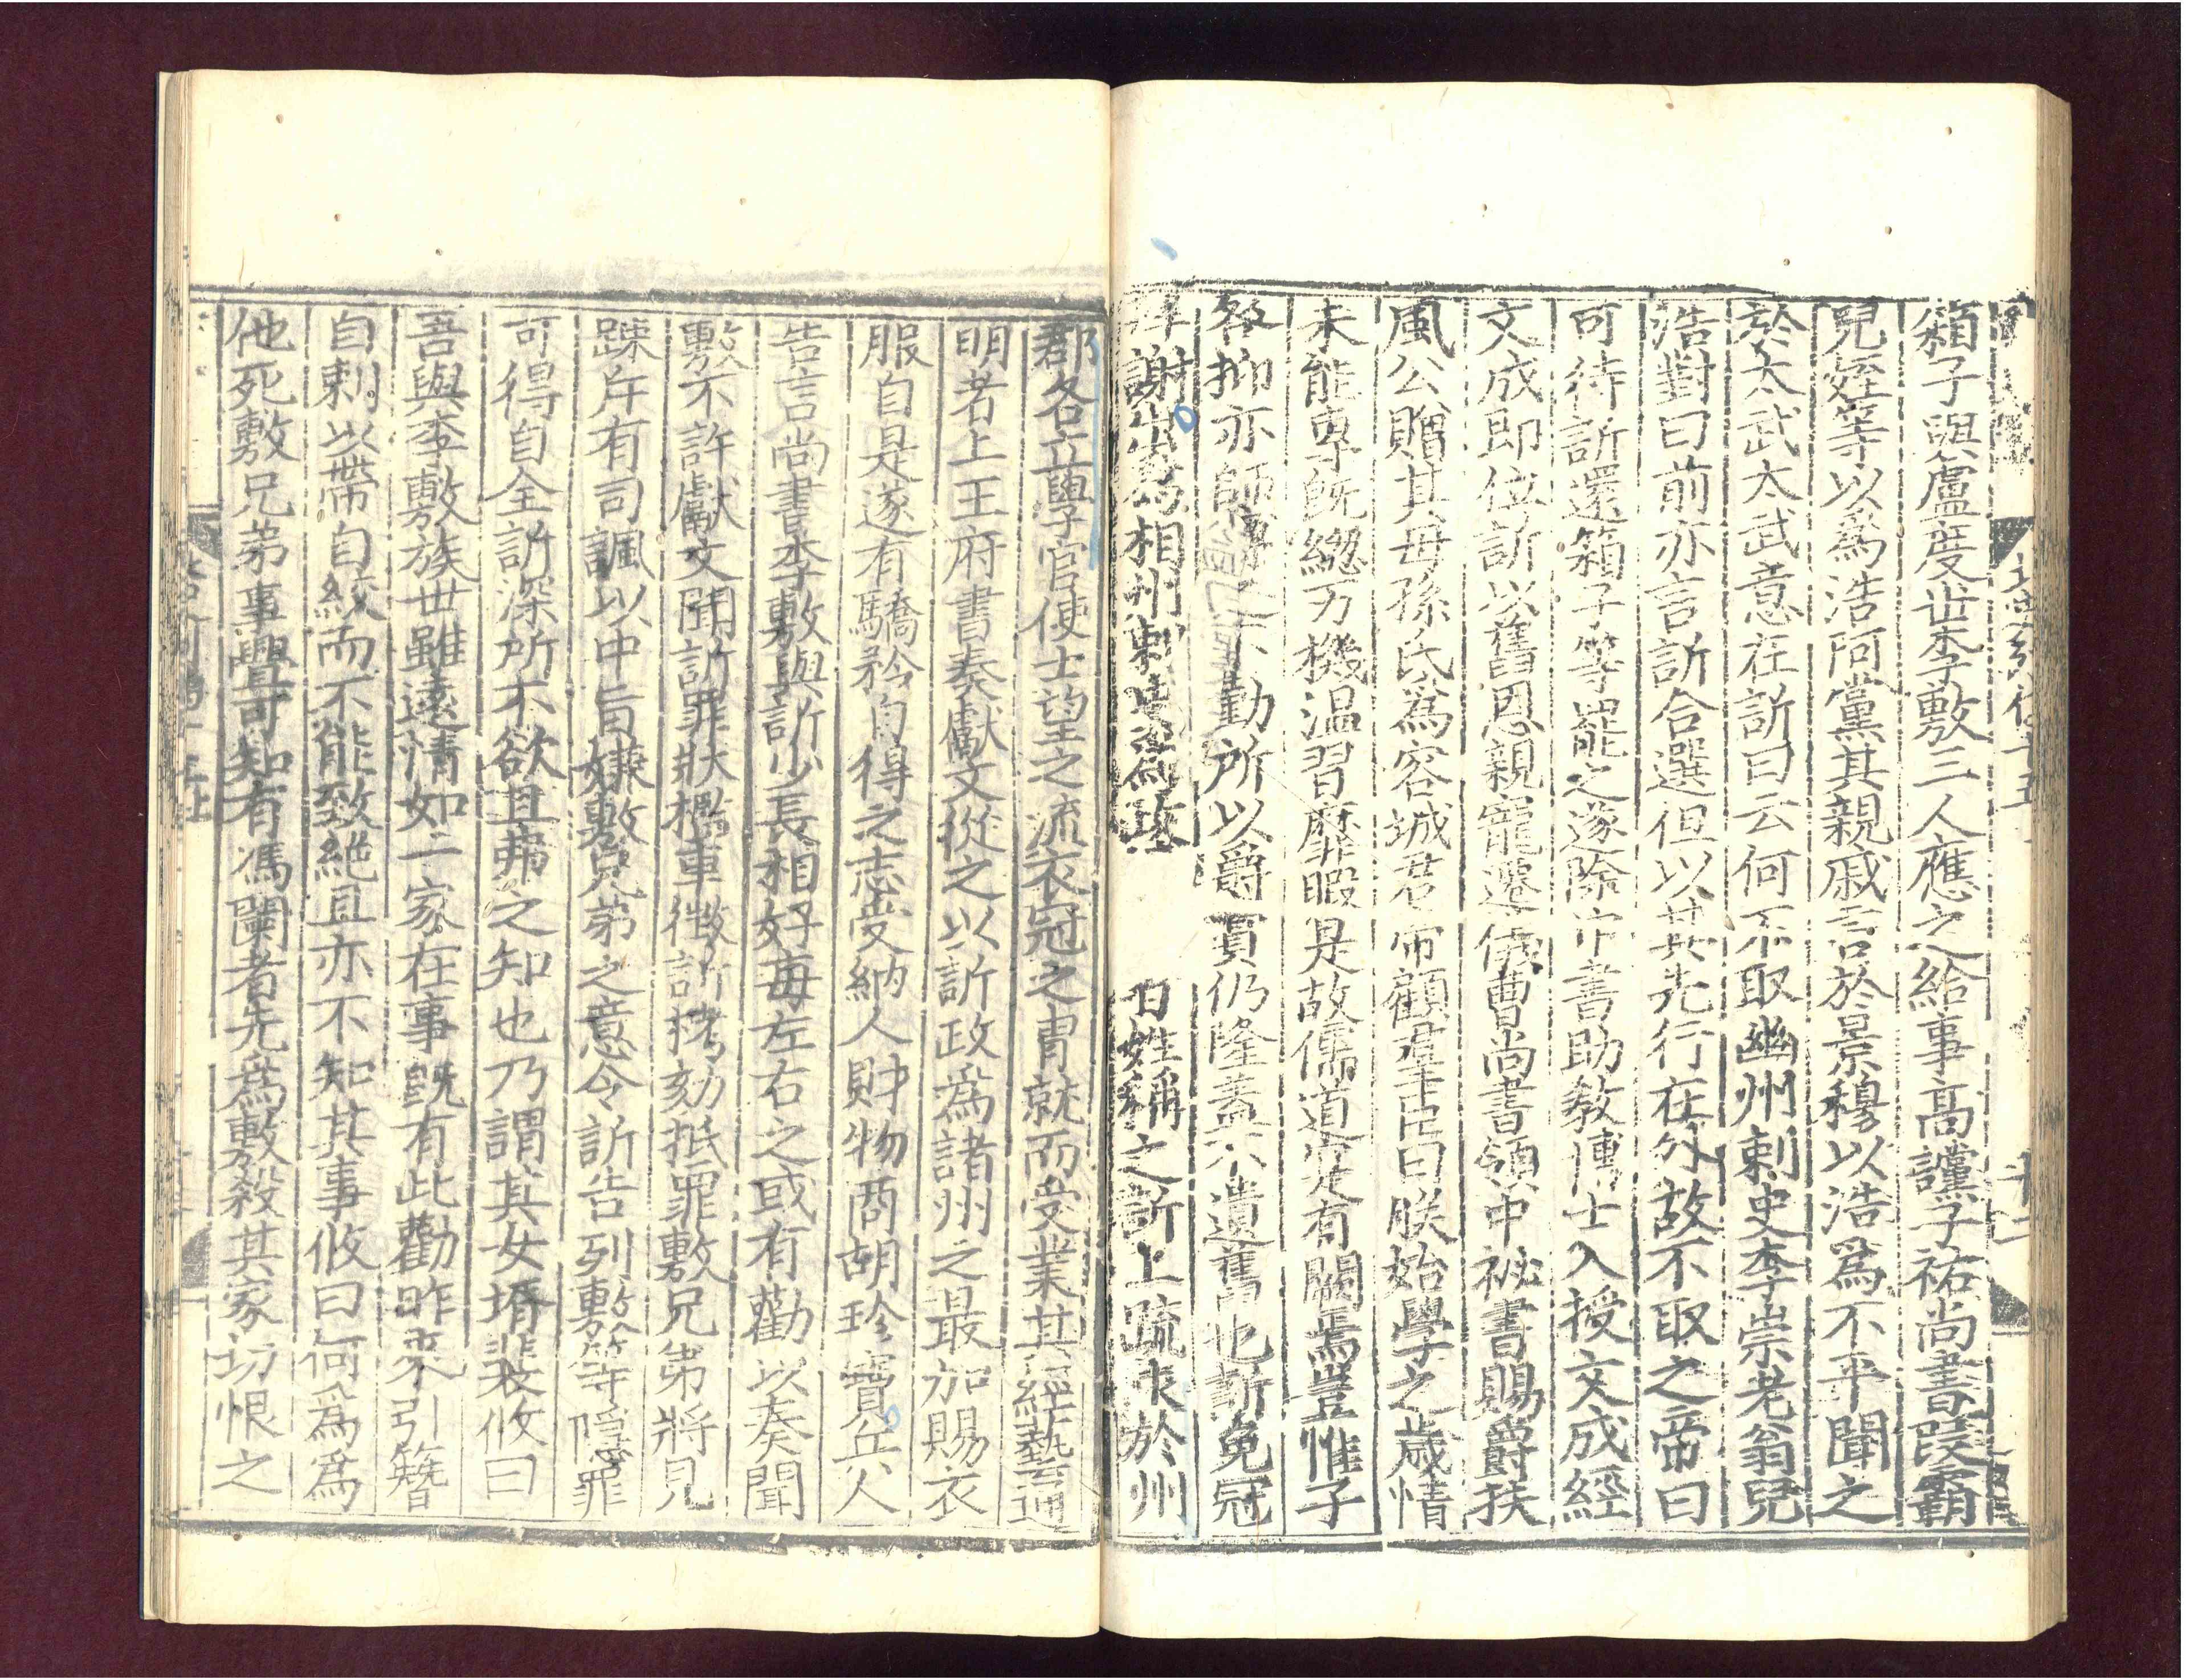 箱子與盧度丗李敷三人應之給事高讜子祐尚書段霸
兒姪等以爲浩阿黨其親戚言於景穆以浩爲不平聞之
於太武太武意在訢曰云何不取幽州刺史李崇老翁兒
浩對曰前亦言訢合選但以其先行在外故不取之帝曰
可待訢還箱子等罷之遂除中書助教博士入授文成經
文成即位訢以舊恩親寵遷儀曹尚書領中祕書賜爵扶
風公贈其母孫氏爲容城君帝顧羣臣曰朕始學之歲情
未能專旣緫万機温習靡暇是故儒道寔有闕焉豈惟予
咎抑亦師傅之不勤所以爵賞仍隆蓋不遺舊也訢免冠
拜謝出爲相州刺史爲政 百姓稱之訢上疏求於州
郡各立學官使士望之流衣冠之冑就而受業其經藝通
明者上王府書奏獻文從之以訢政爲諸州之最加賜衣
服自是遂有驕矜自得之志受納人財物商胡珍寶兵人
告言尚書李敷與訢少長相好每左右之或有勸以奏聞
敷不許獻文聞訢罪狀檻車徴訢拷劾抵罪敷兄弟將見
踈斥有司諷以中旨嫌敷兄弟之意令訢告列敷等隱罪
可得自全訢深所不欲且弗之知也乃謂其女壻裴攸曰
吾與李敷族世雖遠情如一家在事旣有此勸昨來引簪
自刺以帶自絞而不能致絶且亦不知其事攸曰何爲爲
他死敷兄弟事舋可知有馮闡者先爲敷殺其家切恨之